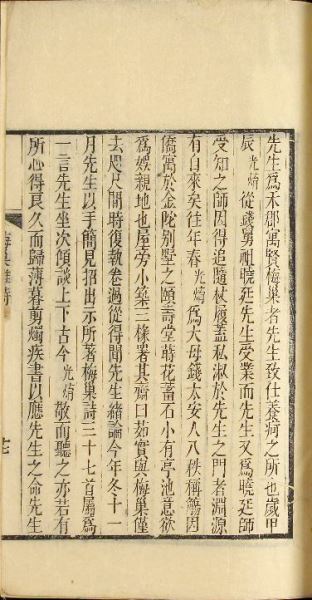 先生爲禾郡寓賢梅巢者先生致仕養疴之所也歲甲
辰光焴從錢舅祖曉廷先生受業而先生又爲曉廷師
受知之師因得追隨杖履蓋私淑於先生之門者淵源
有自來矣往年春光焴爲大母錢太安人八秩稱觴因
僑寓於金陀別墅之頤壽堂蒔花畜石小有亭池意欲
爲娛親地也屋旁小築三椽署其齋曰如實與梅巢僅
去咫尺間時復執卷過從得聞先生緒論今年冬十一
月先生以手簡見招出示所著梅巢詩三十七首屬爲
一言先生坐次傾談上下古今光焴敬而聽之亦若有
所心得良久而歸薄暮剪燭疾書以應先生之命先生